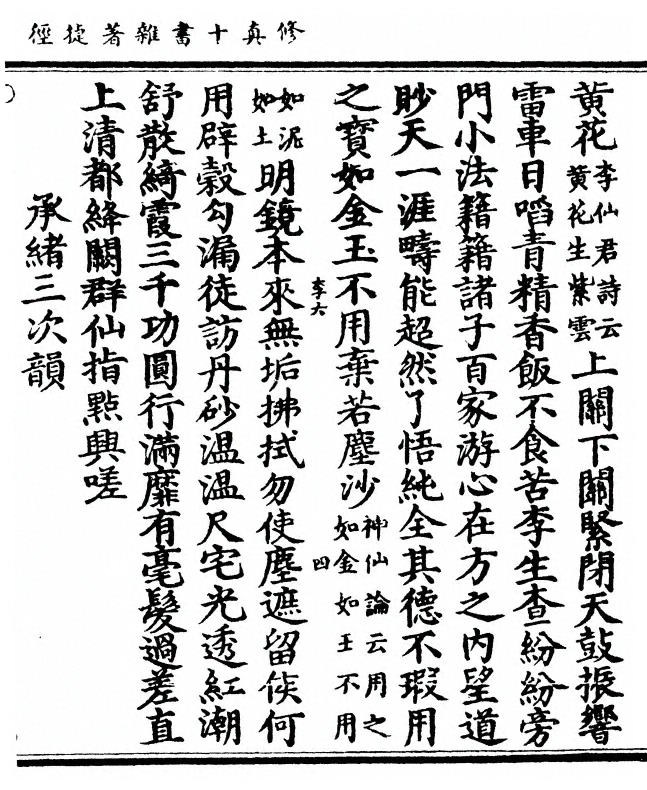 修真十書雜著捷徑
黃花李仙君詩云黃花生紫雲上關下關緊閉天鼓振響
雷車日啗青精香飯不食苦李生查紛紛旁
門小法籍籍諸子百家游心在方之內望道
眇天一涯疇能超然了悟純全其德不瑕用
之寶如金玉不用棄若塵沙神仙論云用之如金如王不用
李六
四
如泥如土明鏡本來無垢拂拭勿使塵遮留侯何
用辟穀勾漏徒訪丹砂溫溫尺宅光透紅潮
舒散綺霞三千功圓行滿靡有毫髮過差直
上清都絳闕群仙指點興嗟
承緒三次韻